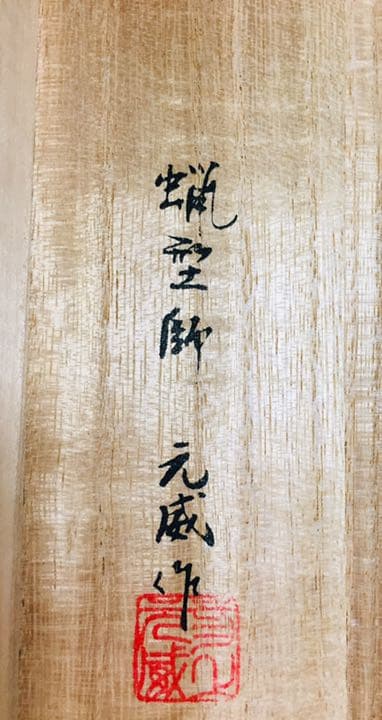 蝋型師 元威作
元威